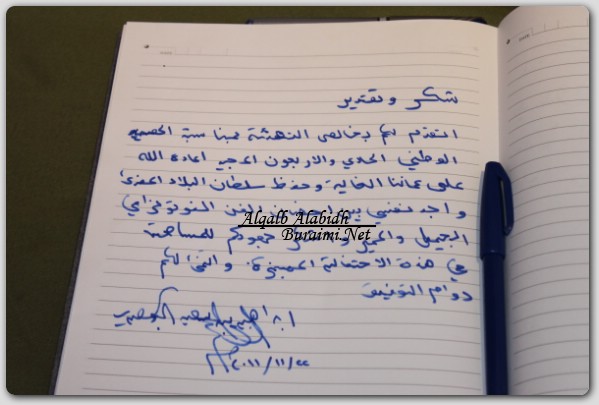 شكر وتقدير
اتقدم لكم بخالص التهنئة بمناسبة العيد
الوطني الحادي والاربعون المجيد اعاده الله
على عماننا الغالية وحفظ سلطان البلاد المفدى
واجد نفسي بين الفن الفوتوغرافي
الجميل جهودكم للمساهمة
في هذه الاحتفالية المميزة. واتمنى لكم
دوام التوفيق
ابراهيم بن سعيد
٢٠١١/١١/٢٢م
Alqalb Alabidh
Buraimi.Net